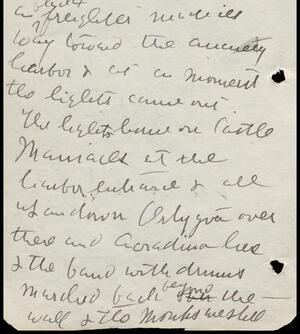 freighter made its
way toward the
harbor & at an moment
the lights came out.
The lights came on Castle
Maniaces at the
harbor entrance & all
up and down Ortygia over
there and Acradina lies
& the band with drums
marched back beyond the
wall & the Monks we still